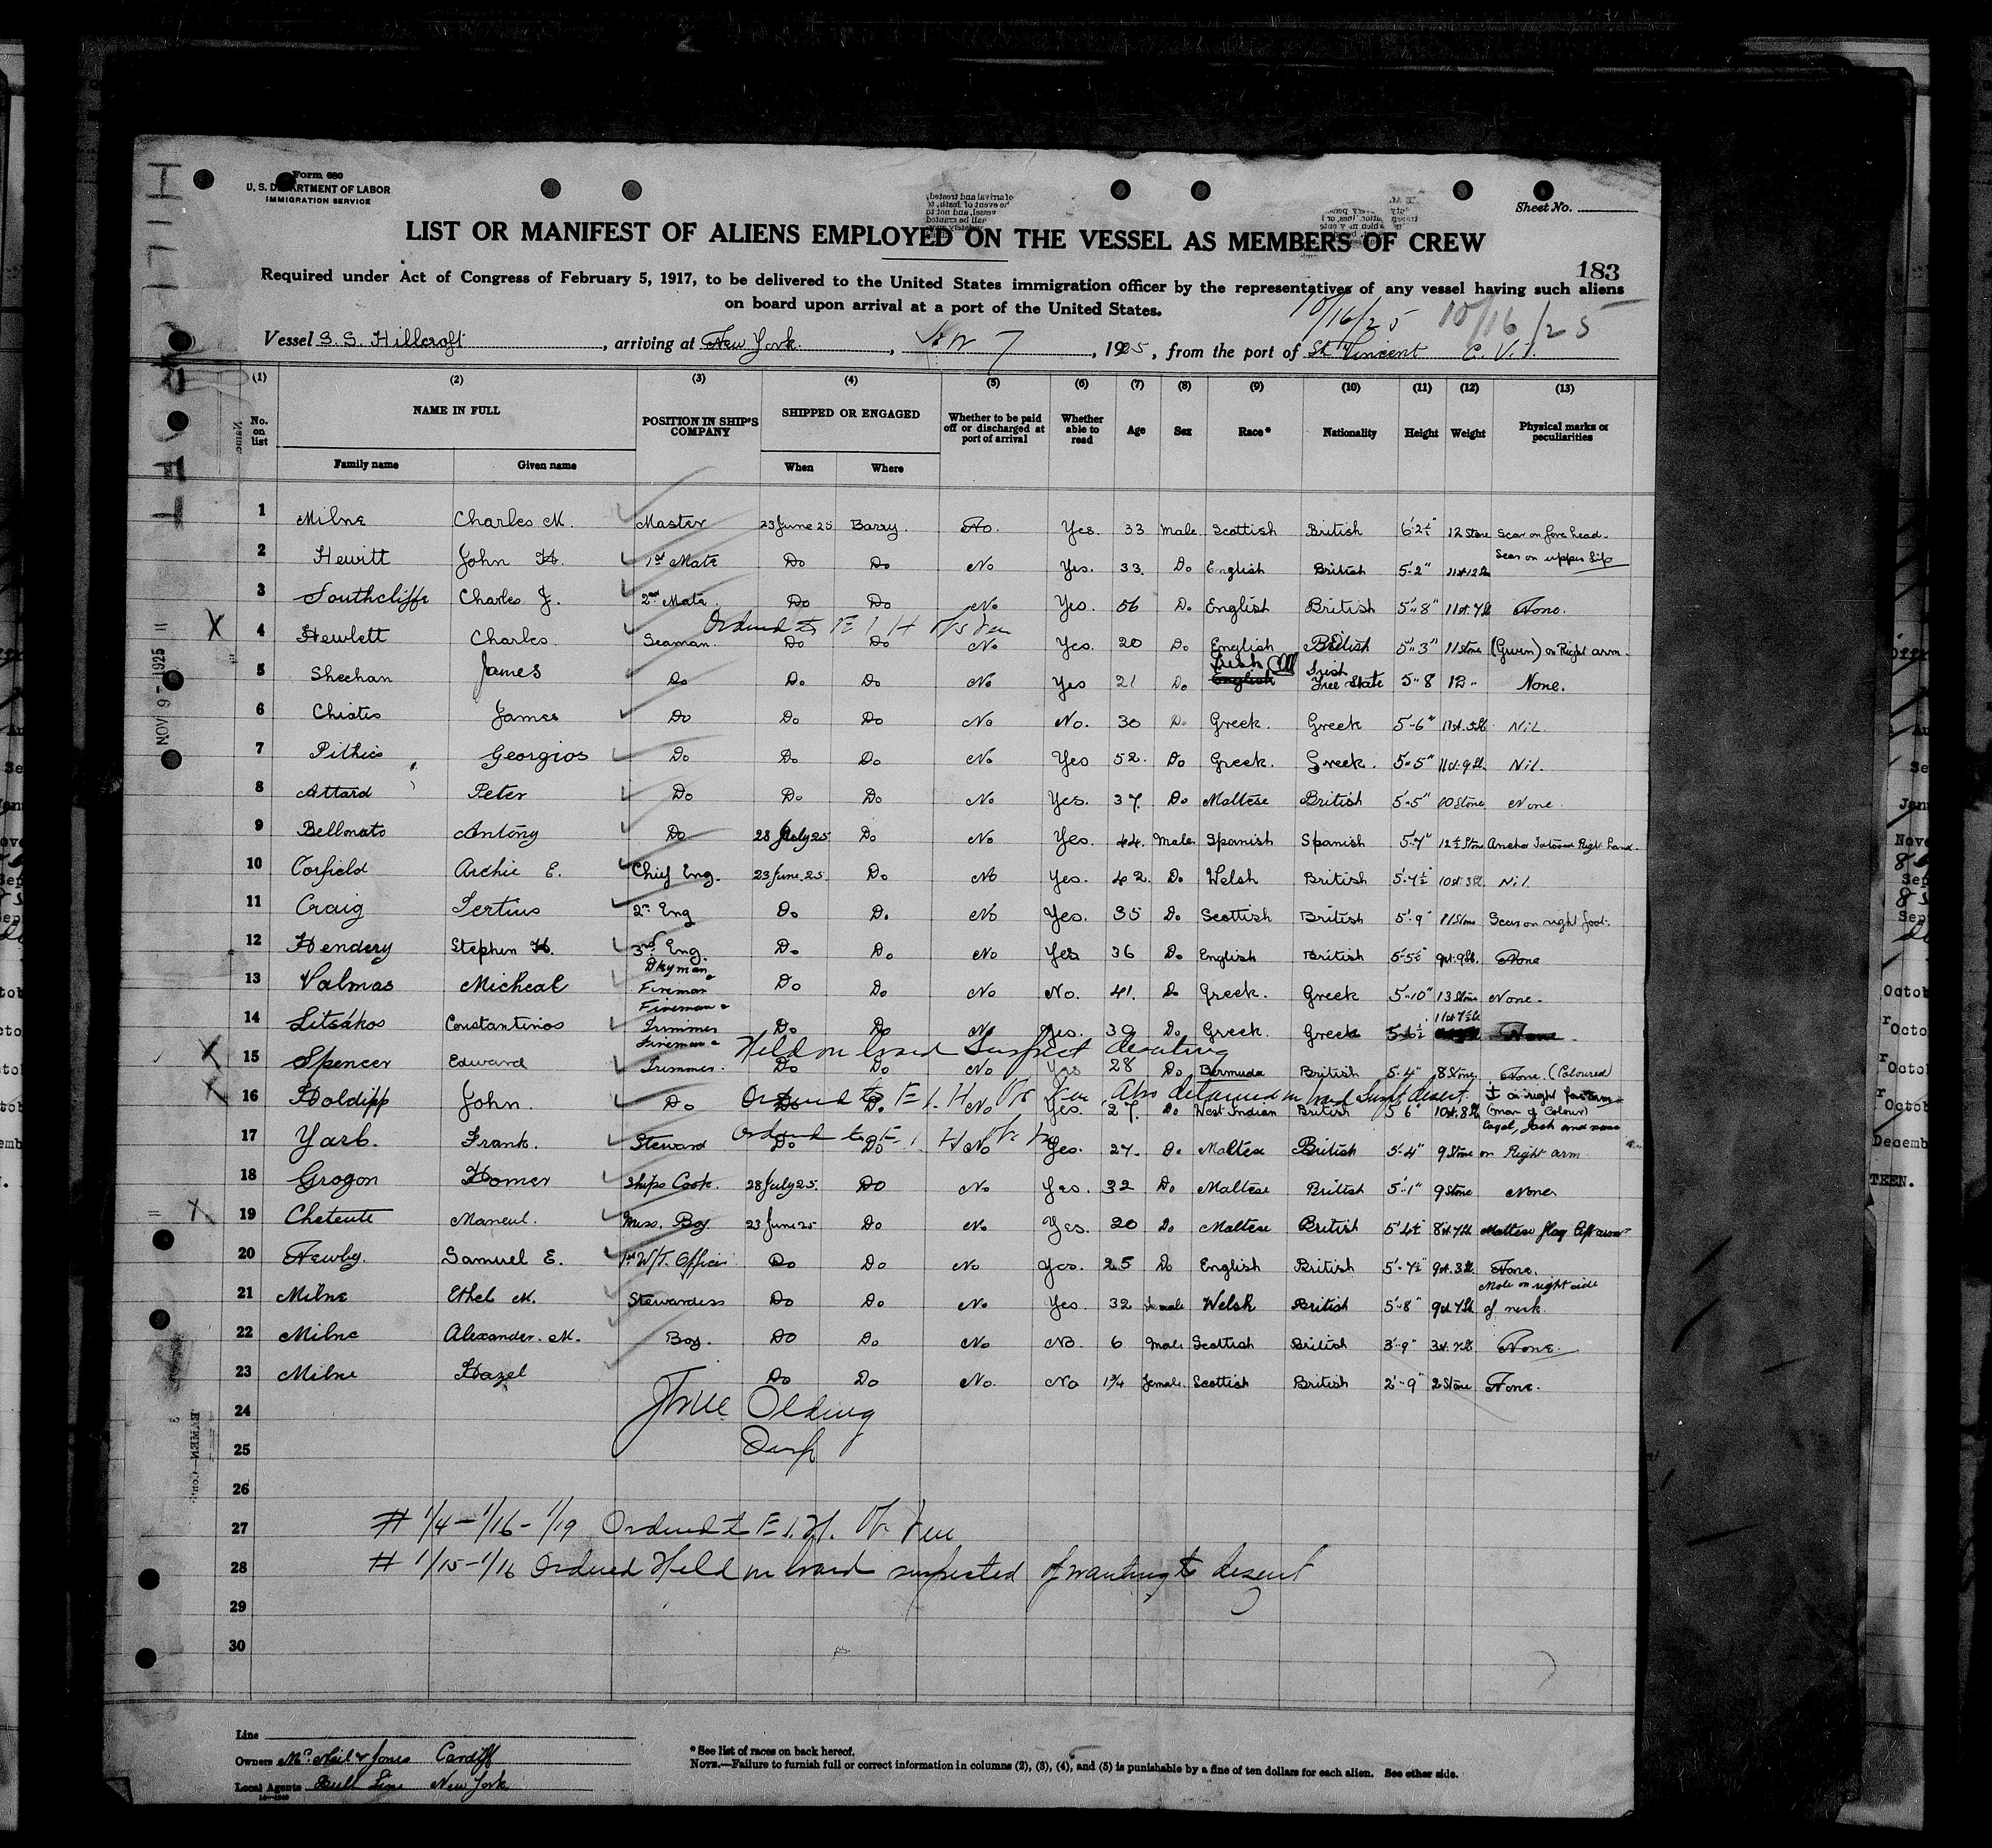 Form 680
U. S. DEPARTMENT OF LABOR
IMMIGRATION SERVICE
Sheet No.
LIST OR MANIFEST OF ALIENS EMPLOYED ON THE VESSEL AS MEMBERS OF CREW
183
Required under Act of Congress of February 5, 1917, to be delivered to the United States immigration officer by the representatives of any vessel having such aliens
on board upon arrival at a port of the United States.
10/16/25 10/16/25
Vessel S. S. Hillcroft, arriving at New York, 1925, from the port of St. Vincent C. V. I.
(1) (2) (3) (4) (5) (6) (7) (8) (9) (10) (11) (12) (13)
No. on list NAME IN FULL POSITION IN SHIP'S COMPANY SHIPPED OR ENGAGED Whether to be paid off or discharged at port of arrival Whether able to read Age Sex Race* Nationality Height Weight Physical marks or peculiarities
Family name Given name When Where
1 Milne Charles M. Master 23 June 25 Barry. No. Yes. 33 Male Scottish British 6'2½" 12 Stone Scar on fore head.
2 Hewitt John H. 1st Mate Do Do No Yes. 33. Do English British 5'-2" 11st 12lb Scar on upper Lip
3 Southcliffe Charles J. 2nd Mate. Do Do No Yes. 56 Do English British 5"8" 11st.7lb None.
Ordered to E I H
4 Hewlett Charles. Seaman. Do Do No Yes. 20 Do. English British 5"3" 11 Stone (Gwen) on Right arm.
5 Sheehan James Do Do Do No Yes 21 Do English Irish Irish Free State 5"8 12" None.
6 Chiotis James Do Do Do No No. 30 Do Greek. Greek 5-6" 11st.5lb Nil.
7 Pithios Georgios Do Do Do No Yes 52. Do Greek. Greek. 5-5" 11st.9lb. Nil.
8 Attard Peter Do Do Do No Yes. 37. Do Maltese British 5'-5" 10 Stone None.
9 Bellonato Antony Do 28 July 25. Do No Yes. 44. Male Spanish Spanish 5-7" 12½ Stone Anchor Tatooed Right hand.
10 Corfield Archie E. Chief Eng. 23 June 25. Do No Yes. 42. Do. Welsh British 5'-7½" 10st.3lb. Nil.
11 Craig Tertius 2nd Eng Do Do. No Yes. 35 Do Scottish British 5'-9" 11 Stone Scar on right foot.
12 Hendery Stephen H. 3rd Eng. Do. Do. No Yes 36 Do. English British 5-5½" 9st.9lb. None
13 Valmas Micheal Dkyman Fireman Do Do. No No. 41. Do Greek. Greek 5"-10" 13 Stone None.
14 Litsakos Constantinos Fireman & Trimmer Do Do No Yes. 30 Do. Greek Greek 5-6½ 11st 7½lb None.
Held on board Suspect deserting
15 Spencer Edward Fireman & Trimmer. Do Do No Yes 28 Do Bermuda British 5'4" 8 Stone None. (Coloured)
Ordered to E. I. H. Also detained on board Suspt. desert.
16 Holdipp John. Do Do Do. No Yes. 27. Do West Indian British 5'6" 10st.8lb I on right forearm (man of Colour)
Ordered to E. I. H
17 Yarb. Frank. Steward Do Do No Yes. 27. Do. Maltese British 5'-4" 9 Stone Eagel, Jack and name on Right arm.
18 Grogon Homer Ships Cook. 28 July 25. Do No Yes. 32 Do Maltese British 5'-1" 9 Stone None
19 Cheteute Maneul. Mess. Boy. 23 June 25 Do No Yes. 20 Do Maltese British 5'4½ 8st.7lb Maltese flag left arm
20 Newby. Samuel E. 1st W/T. Officer Do Do No Yes. 25 Do English British 5'-7½" 9st.3lb. None.
21 Milne Ethel M. Stewardess Do Do. No Yes 32 female Welsh British 5'-8" 9st.7lb Mole on right side of neck.
22 Milne Alexander. M. Boy. Do Do. No No. 6 Male Scottish British 3'-9" 3st.7lb None.
23 Milne Hazel Do Do No. No 1¾ female. Scottish British 2'-9" 2 Stone None.
24 Olding
25
26
27 # 1/4 - 1/16 - 1/19 Ordered to E. I. H.
28 # 1/15 - 1/16 Ordered Held on board suspected of wanting to desert
29
30
NOV 9 - 1925
Line
Owners McNeil & Jones Cardiff
Local Agents Bull Line New York
* See list of races on back hereof.
NOTE.—Failure to furnish full or correct information in columns (2), (3), (4), and (5) is punishable by a fine of ten dollars for each alien. See other side.